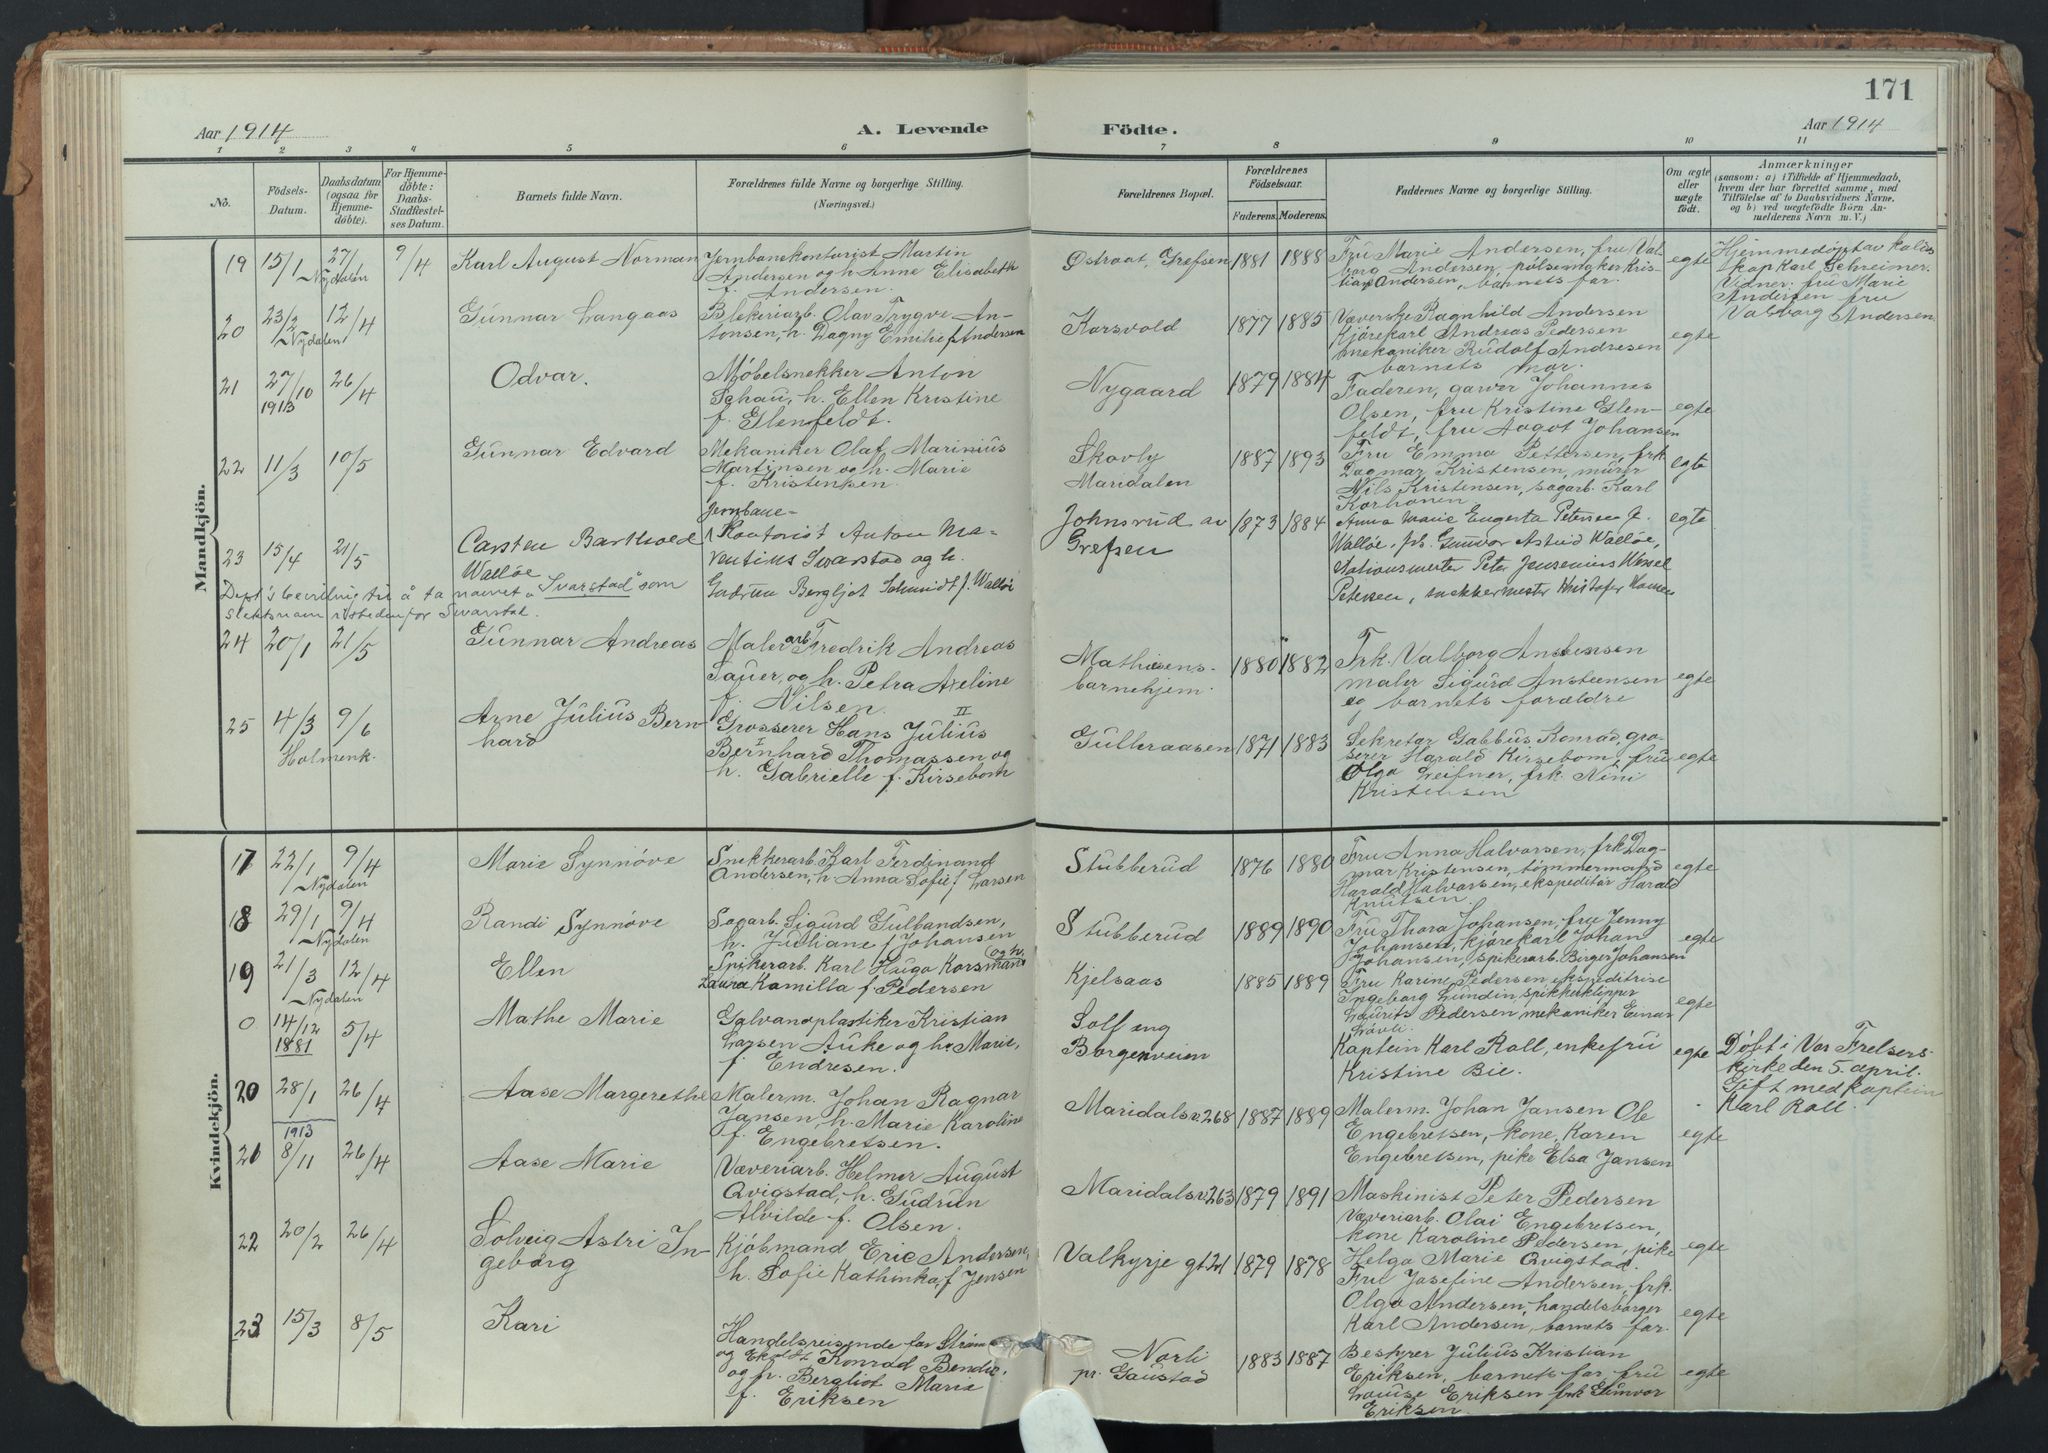 171
Aar 1914 A. Levende Födte. Aar 1914
1 2 3 4 5 6 7 8 9 10 11
No. Födsels-Datum. Daabsdatum (ogsaa for Hjemmedöbte). For Hjemmedöbte: Daabs-Stadfæstelses Datum. Barnets fulde Navn. Forældrenes fulde Navne og borgerlige Stilling. (Næringsvei.) Forældrenes Bopæl. Forældrenes Födselsaar. Faderens. Moderens. Faddernes Navne og borgerlige Stilling. Om ægte eller uægte födt. Anmærkninger (saasom: a) i Tilfælde af Hjemmedaab, hvem der har forrettet samme, med Tilföielse af to Daabsvidners Navne, og b) ved uægtefödte Börn Anmelderens Navn m. V.)
Mandkjön.
19 15/1 27/1 9/4 Karl August Norman
Nydalen
Jernbanekontorist Martin
Andersen og h. Anne Elisabeth
f. Andersen.
Østraat, Grefsen 1881 1888
Fru Marie Andersen, fru Val-
borg Andersen, pølsemaker Kris-
tian Andersen, barnets far.
egte
Hjemmedøpt av
Karl Schreiner.
Vidner: fru Marie
Andersen fru
Valborg Andersen.
20 23/2 12/4 Gunnar Langaas
Nydalen
Blekeriarb. Olav Trygve An-
tonsen, h. Dagny Emilie f Andersen
Korsvold 1877 1885
Væverske Ragnhild Andersen
Kjørekarl Andreas Pedersen
mekaniker Rudolf Andresen
barnets mor.
egte
21 27/10 26/4 Odvar.
1913
Møbelsnekker Anton
Schau, h. Ellen Kristine
f. Elenfeldt.
Nygaard 1879 1884
Faderen, garver Johannes
Olsen, fru Kristine Elen-
feldt, fru Aagot Johansen
egte
22 11/3 10/5 Gunnar Edvard
Mekaniker Olaf Marinius
Martinsen og h. Marie
f. Kristensen.
Skovly
Maridalen
1887 1893
Fru Emma Pettersen, frk.
Dagmar Kristensen, murer
Nils Kristensen, sagarb. Karl
Korhonen.
egte
23 15/4 21/5 Carsten Barthold
Walløe
Jernbane-
Kontorist Anton Ma-
rentius Svarstad og h.
Gudrun Bergljot Schmidt f. Walløe
Johnsrud av
Grefsen
1873 1884
Anna Marie Eugenta Petersen f.
Walløe, frk. Gunvor Astrid Walløe,
Stationsmester Peter Jensenius Wessel
Petersen, snekkermester Kristofer Hansen
egte
Dept's bevilling til å ta navnet "Svarstad" som
slektsnavn istedenfor Svarstad.
24 20/1 21/5 Gunnar Andreas
Malerarb. Fredrik Andreas
Sauer, og h. Petra Axeline
f. Nilsen.
Mathiesens-
barnehjem.
1880 1882
Frk. Valborg Anstensen
maler Sigurd Ansteensen
og barnets forældre
egte
25 4/3 9/6 Arne Julius Bern
hard
Holmenk.
Grosserer Hans Julius II
Bernhard I Thomassen og
h. Gabrielle f. Kirsebom
Gulleraasen 1871 1883
Sekretær Gabbus Konrad, gro-
serer Harald Kirsebom, fru
Olga Leifner, frk. Nini
Kristensen
egte
Kvindekjön.
17 22/1 9/4 Marie Synnøve
Nydalen
Snekkerarb. Karl Ferdinand
Andersen, h. Anna Sofie f Larsen
Stubberud 1876 1880
Fru Anna Halvorsen, frk Dag-
mar Kristensen, tømmermand
Harald Halvorsen, ekspeditør Harald
Knutsen.
egte
18 29/1 9/4 Randi Synnøve
Nydalen
Sagarb. Sigurd Gulbrandsen,
h. Juliane f Johansen
Stubberud 1889 1890
Fru Thora Johansen, fru Jenny
Johansen, kjørekarl Johan
Johansen, spikerarb. Birger Johansen
egte
19 21/3 12/4 Ellen
Nydalen
Spikerarb. Karl Hugo Korsman og h.
Laura Kamilla f. Pedersen
Kjelsaas 1885 1889
Fru Karine Pedersen, ekspeditrise
Ingeborg Lundin, spikerklipper
Laurits Pedersen, mekaniker Einar
Løvli.
egte
0 14/12 5/4 Mathe Marie
1881
Galvanoplastiker Kristian
Larsen Auke og h. Marie,
f. Endresen.
Solfeng
Borgenveien
Kaptein Karl Roll, enkefru
Kristine Bie.
egte
Døpt i Vor Frelsers-
kirke den 5. april.
Gift med kaptein
Karl Roll.
20 28/1 26/4 Aase Margerethe
Malerm. Johan Ragnar
Jansen, h. Marie Karoline
f. Engebretsen.
Maridalsv. 268 1887 1889
Malerm. Johan Jansen Ole
Engebretsen, kone Karen
Engebretsen, pike Elsa Jansen
egte
1913
21 8/11 26/4 Aase Marie
Væveriarb. Helmer August
Qvigstad, h. Gudrun
Alvilde f. Olsen.
Maridalsv 263 1879 1891
Maskinist Peter Pedersen
Væveriarb. Olai Engebretsen,
kone Karoline Pedersen, pike
Helga Marie Qvigstad.
egte
22 20/2 26/4 Solveig Astri In-
geborg
Kjøbmand Eric Andersen,
h. Sofie Kathinka, f Jensen
Valkyrje gt 21 1879 1878
Fru Josefine Andersen, frk.
Olga Andersen, handelsborger
Karl Andersen, barnets far.
egte
23 15/3 8/5 Kari
Handelsreisende for Strøm
og Konrad Bendix.
og h. Bergliot Marie
f. Eriksen
Norli
pr. Gaustad
1883 1887
Bestyrer Julius Kristian
Eriksen, barnets far, fru
Louise Eriksen frk Gunvor
Eriksen.
egte